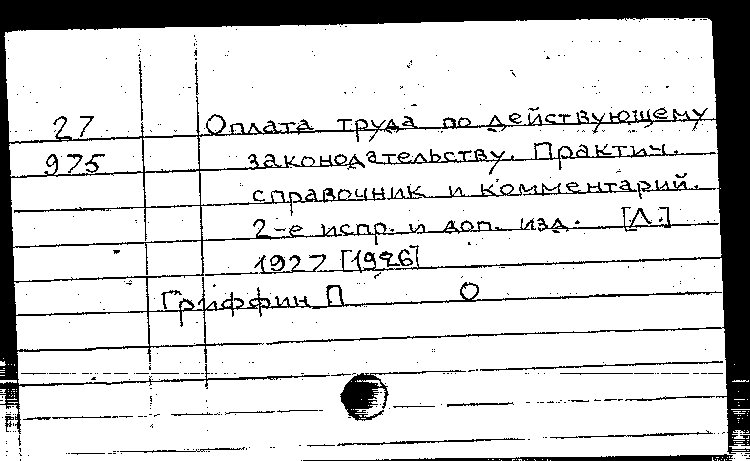 27 Оплата труда по действующему
975 законодательству. Практич.
справочник и комментарий.
2-е испр. и доп. изд. [Л.]
1927 [1926]
Гриффин П О